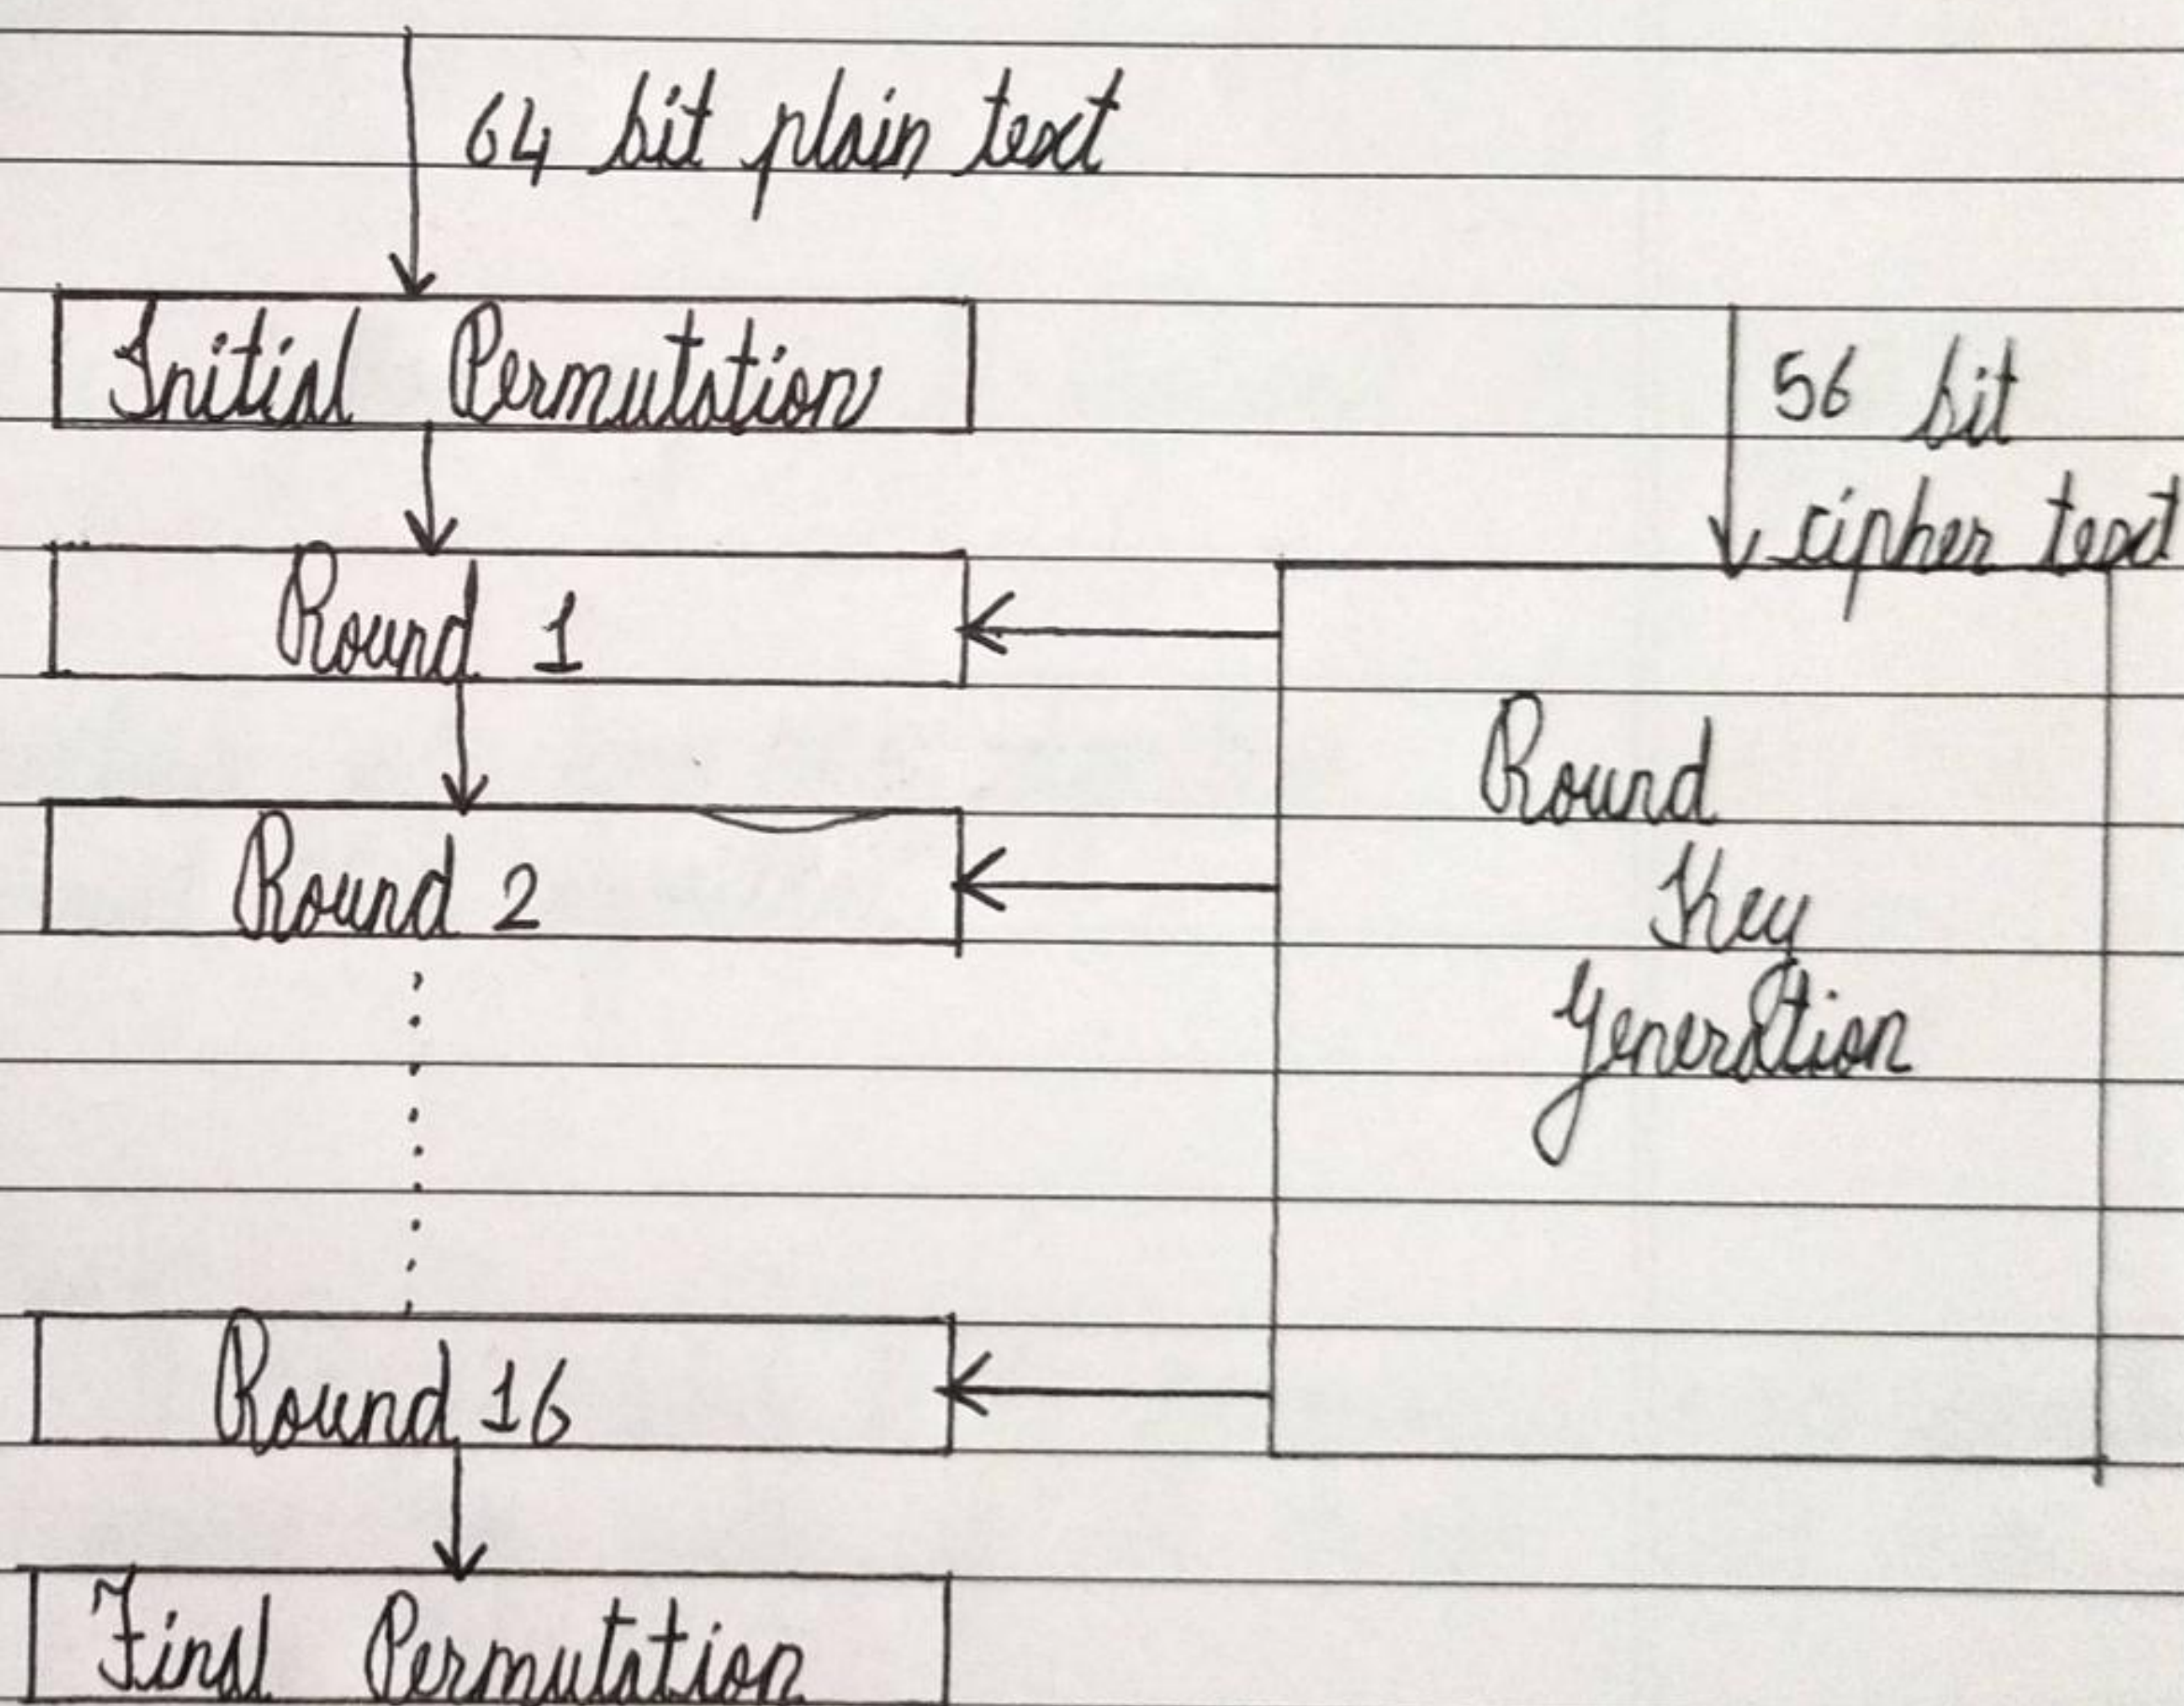 64 bit plain text
Initial Permutation
56 bit
cipher text
Round 1
Round
Key
Generation
Round 2
Round 16
Final Permutation